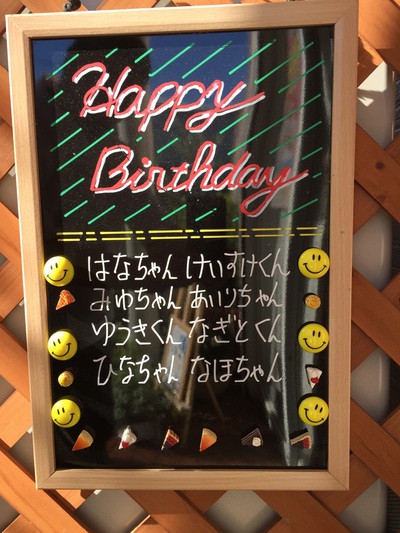 Happy
Birthday
はなちゃん けいすけくん
みゆちゃん あいりちゃん
ゆうきくん なぎとくん
ひなちゃん なほちゃん